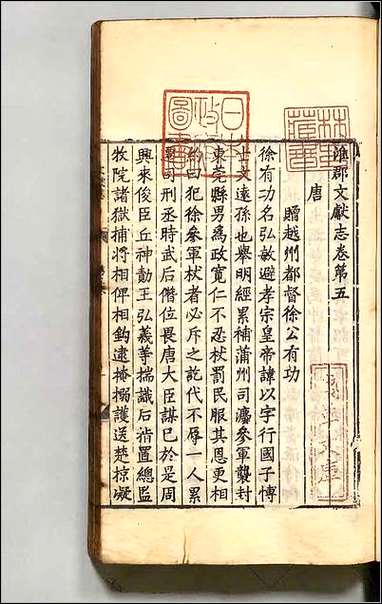 淮郡文獻志卷第五
唐
贈越州都督徐公有功
徐有功名弘敏避孝宗皇帝諱以字行國子博
士文遠孫也舉明經累補蒲州司灋參軍襲封
東莞縣男為政寬仁不忍杖罰民服其恩更相
約曰犯徐參軍杖者必斥之訖代不辱一人累
遷司刑丞時武后僭位畏唐大臣謀已於是周
興來俊臣丘神勣王弘義等揣識后指置總監
牧院諸獄捕將相俾相鉤逮掩搦護送楚掠凝
日本
政府
圖書
林氏
藏書
淺草文庫